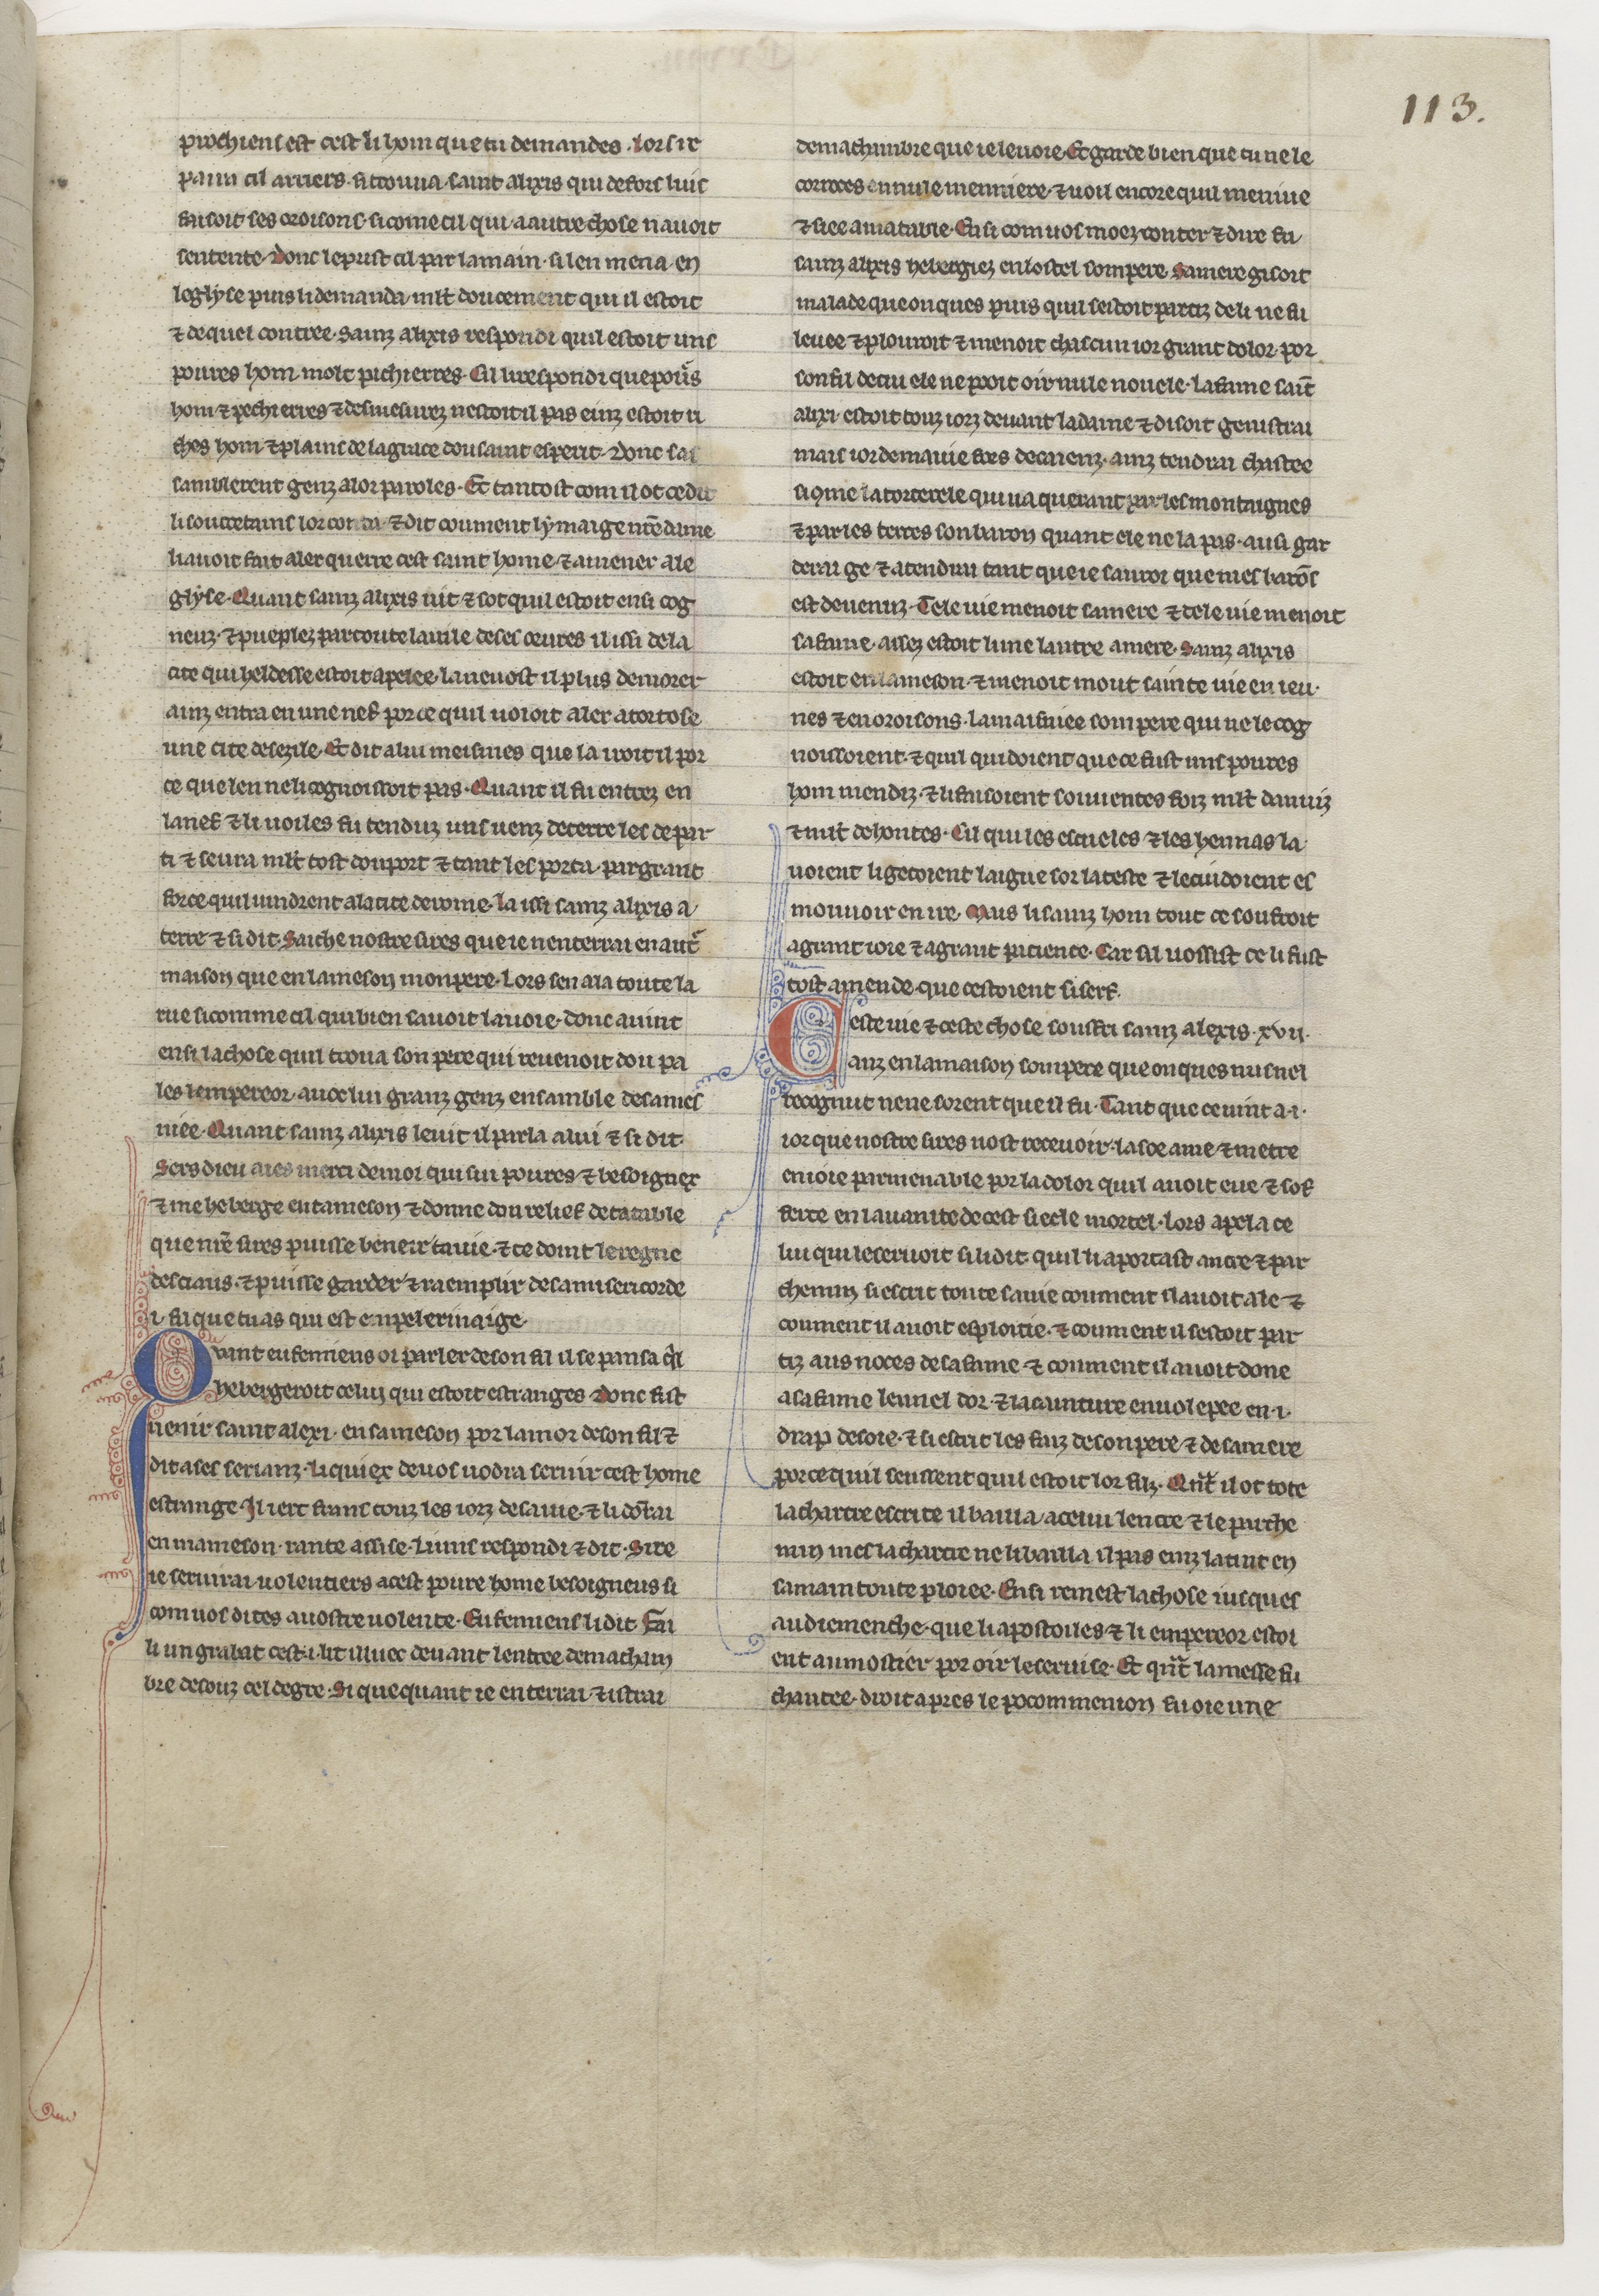 113.
prochiens est cest li hom que tu demandes. lors re
paira cil arriers. si trouua saint alixis qui defors luis
faisoit ses oroisons. si come cil qui a autre chose nauoit
sentente. Donc le prist cil par la main. si len mena en
leglyse puis li demanda mlt doucement qui il estoit
⁊ de quel contree. Sainz alixis respondi quil estoit uns
poures hom molt pechierres. Cil li respondi que poures
hom ⁊ pechierres ⁊ desmesurez nestoit il pas einz estoit ri
ches hom ⁊ plains de la grace dou saint esperit. Donc sas
samblerent genz a lor paroles. Et tantost com il ot ce dit
li soucretains lor conta. ⁊ dit coument lymaige nre dame
li auoit fait aler querre cest saint home. ⁊ amener a le
glyse. Quant sainz alixis uit ⁊ sot quil estoit ensi cog
neuz. ⁊ pueplez par toute la uile de ses oeures il issi de la
cite qui heldesse estoit apelee. la ne uost il plus demorer
ainz entra en une nef por ce quil uoloit aler a tortose
une cite de sezile. Et dit a lui meismes que la iroit il por
ce que len ne li cognoistroit pas. Quant il fu entrez en
la nef ⁊ li uoiles fu tenduz uns uenz de terre les depar
ti ⁊ seura mlt tost dou port ⁊ tant les porta. par grant
force quil uindrent a la cite de rome. la issi sainz alixis a
terre ⁊ si dit. Saiche nostre sires que ie nenterrai en autre
maison que en la meson mon pere. Lors sen ala toute la
rue si comme cil qui bien sauoit la uoie. donc auint
ensi la chose quil troua son pere qui reuenoit dou pa
les lempereor. auec lui granz genz ensamble de sa mes
niee. Quant sainz alixis le uit il parla a lui ⁊ si dit.
Sers dieu aies merci de moi qui sui poures ⁊ besoignex
⁊ me heberge en ta meson ⁊ donne dou relief de ta table
que nre sires puisse beneir ta uie. ⁊ te doint le regne
des ciaus. ⁊ puisse garder ⁊ raemplir de sa misericorde
.i. fil que tu as qui est en pelerinaige.
Quant eufemiens oi parler de son fil il se pansa quil
hebergeroit celui qui estoit estranges. Donc fist
uenir saint alexi. en sa meson por lamor de son fil ⁊
dit a ses serianz. li quiex de uos uodra seruir cest home
estrange. Il iert frans touz les iorz de sa uie. ⁊ li dorrai
en ma meson. rante assise. Li uns respondi ⁊ dit. Sire
ie seruirai uolentiers a cest poure home besoigneus si
com uos dites a uostre uolente. Eufemiens li dit Fai
li un grabat cest .i. lit iluec deuant lentree de ma cham
bre desouz cel degre. Si que quant ie enterrai ⁊ istrai
de ma chambre que ie le uoie. Et garde bien que tu ne le
corroces en nule menniere. ⁊ uoil encore quil meniue
⁊ siee a ma table. Ensi com uos moez conter ⁊ dire fu
sainz alixis hebergiez en lostel son pere. Sa mere gisoit
malade que onques puis quil sestoit partiz de li ne fu
leuee ⁊ plouroit ⁊ menoit chascun ior grant dolor. por
son fil de cui ele ne pooit oir nule nouele. la fame saint
alixi. estoit touz iorz deuant la dame ⁊ disoit ge nistrai
mais ior de ma uie fors de caienz. ainz tendrai chastee
si come la torterele qui ua querant par les montaignes
⁊ par les terres son baron quant ele ne la pas. ausi gar
derai ge ⁊ atendrai tant que ie saurai que mes barons
est deuenuz. Tele uie menoit sa mere ⁊ tele uie menoit
sa fame. assez estoit lune lautre amere. Sainz alixis
estoit en la meson. ⁊ menoit mout sainte uie en ieu.
nes ⁊ en oroisons. la maisniee son pere qui ne le cog
noissoient. ⁊ quil quidoient que ce fust uns poures
hom mendiz. ⁊ li faisoient souuentes foiz mlt danuiz
⁊ mlt de hontes. Cil qui les escueles ⁊ les hennas la
uoient li getoient laigue sor la teste ⁊ le cuidoient es
mouuoir en ire. Mais li sainz hom tout ce soufroit
a grant ioie ⁊ a grant pacience. Car sil uossist ce li fust
tost amende. que cestoient si serf.
Ceste uie ⁊ ceste chose souffri sainz alexis .xvii.
anz en la maison son pere que onques nus nel
recognut ne ne sorent que il fu. Tant que ce uint a .i.
ior que nostre sires uost receuoir. la soe ame ⁊ metre
en ioie parmenable por la dolor quil auoit eue ⁊ sof
ferte en la uanite de cest siecle mortel. lors apela ce
lui qui le seruoit si li dit. quil li aportast ancre ⁊ par
chemin si escrit toute sa uie coument il auoit ale ⁊
coument il auoit esploitie. ⁊ coument il sestoit par
tiz aus noces de sa fame ⁊ coument il auoit done
a sa fame lennel dor. ⁊ la cainture enuolepee en .i.
drap de soie. ⁊ si escrit les faiz de son pere ⁊ de sa mere
por ce quil seussent quil estoit lor filz. Qnt il ot tote
la chartre escrite il bailla a celui lencre ⁊ le parche
min mes la chartre ne li bailla il pas einz la tint en
sa main toute ploiee. Ensi remest la chose iusques
au diemenche. que li apostoiles ⁊ li empereor estoi
ent au mostier por oir le seruise. Et qnt la messe fu
chantee. droit apres le pocommenion fu oie une